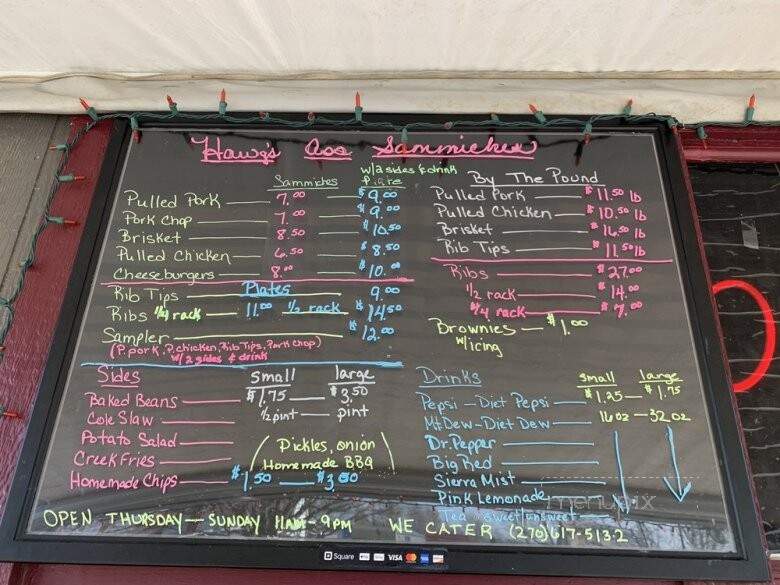 Hawg's Ass Sammiches
w/2 sides & drink
Sammiches Plate
Pulled Pork 7.00 $9.00
Pork Chop 7.00 $9.00
Brisket 8.50 $10.50
Pulled Chicken 6.50 $8.50
Cheeseburgers 8.00 $10.00
Plates
Rib Tips 9.00
Ribs 1/4 rack 11.00 1/2 rack $14.50
Sampler $12.00
(P. pork, P. chicken, Rib Tips, Pork Chop)
w/2 sides & drink
By The Pound
Pulled Pork $11.50 lb
Pulled Chicken $10.50 lb
Brisket $16.50 lb
Rib Tips $11.50 lb
Ribs $27.00
1/2 rack $14.00
1/4 rack $7.00
Brownies $1.00
w/icing
Sides small large
$1.75 $3.50
1/2 pint pint
Baked Beans
Cole Slaw
Potato Salad
Creek Fries
Homemade Chips $1.50 $3.00
(Pickles, onion
Homemade BBQ)
Drinks small large
$1.25 $1.75
16 oz - 32 oz
Pepsi - Diet Pepsi
Mt Dew - Diet Dew
Dr. Pepper
Big Red
Sierra Mist
Pink Lemonade
Tea sweet/unsweet
menupix
OPEN THURSDAY - SUNDAY 11AM - 9PM WE CATER (270) 617-5132
Square VISA